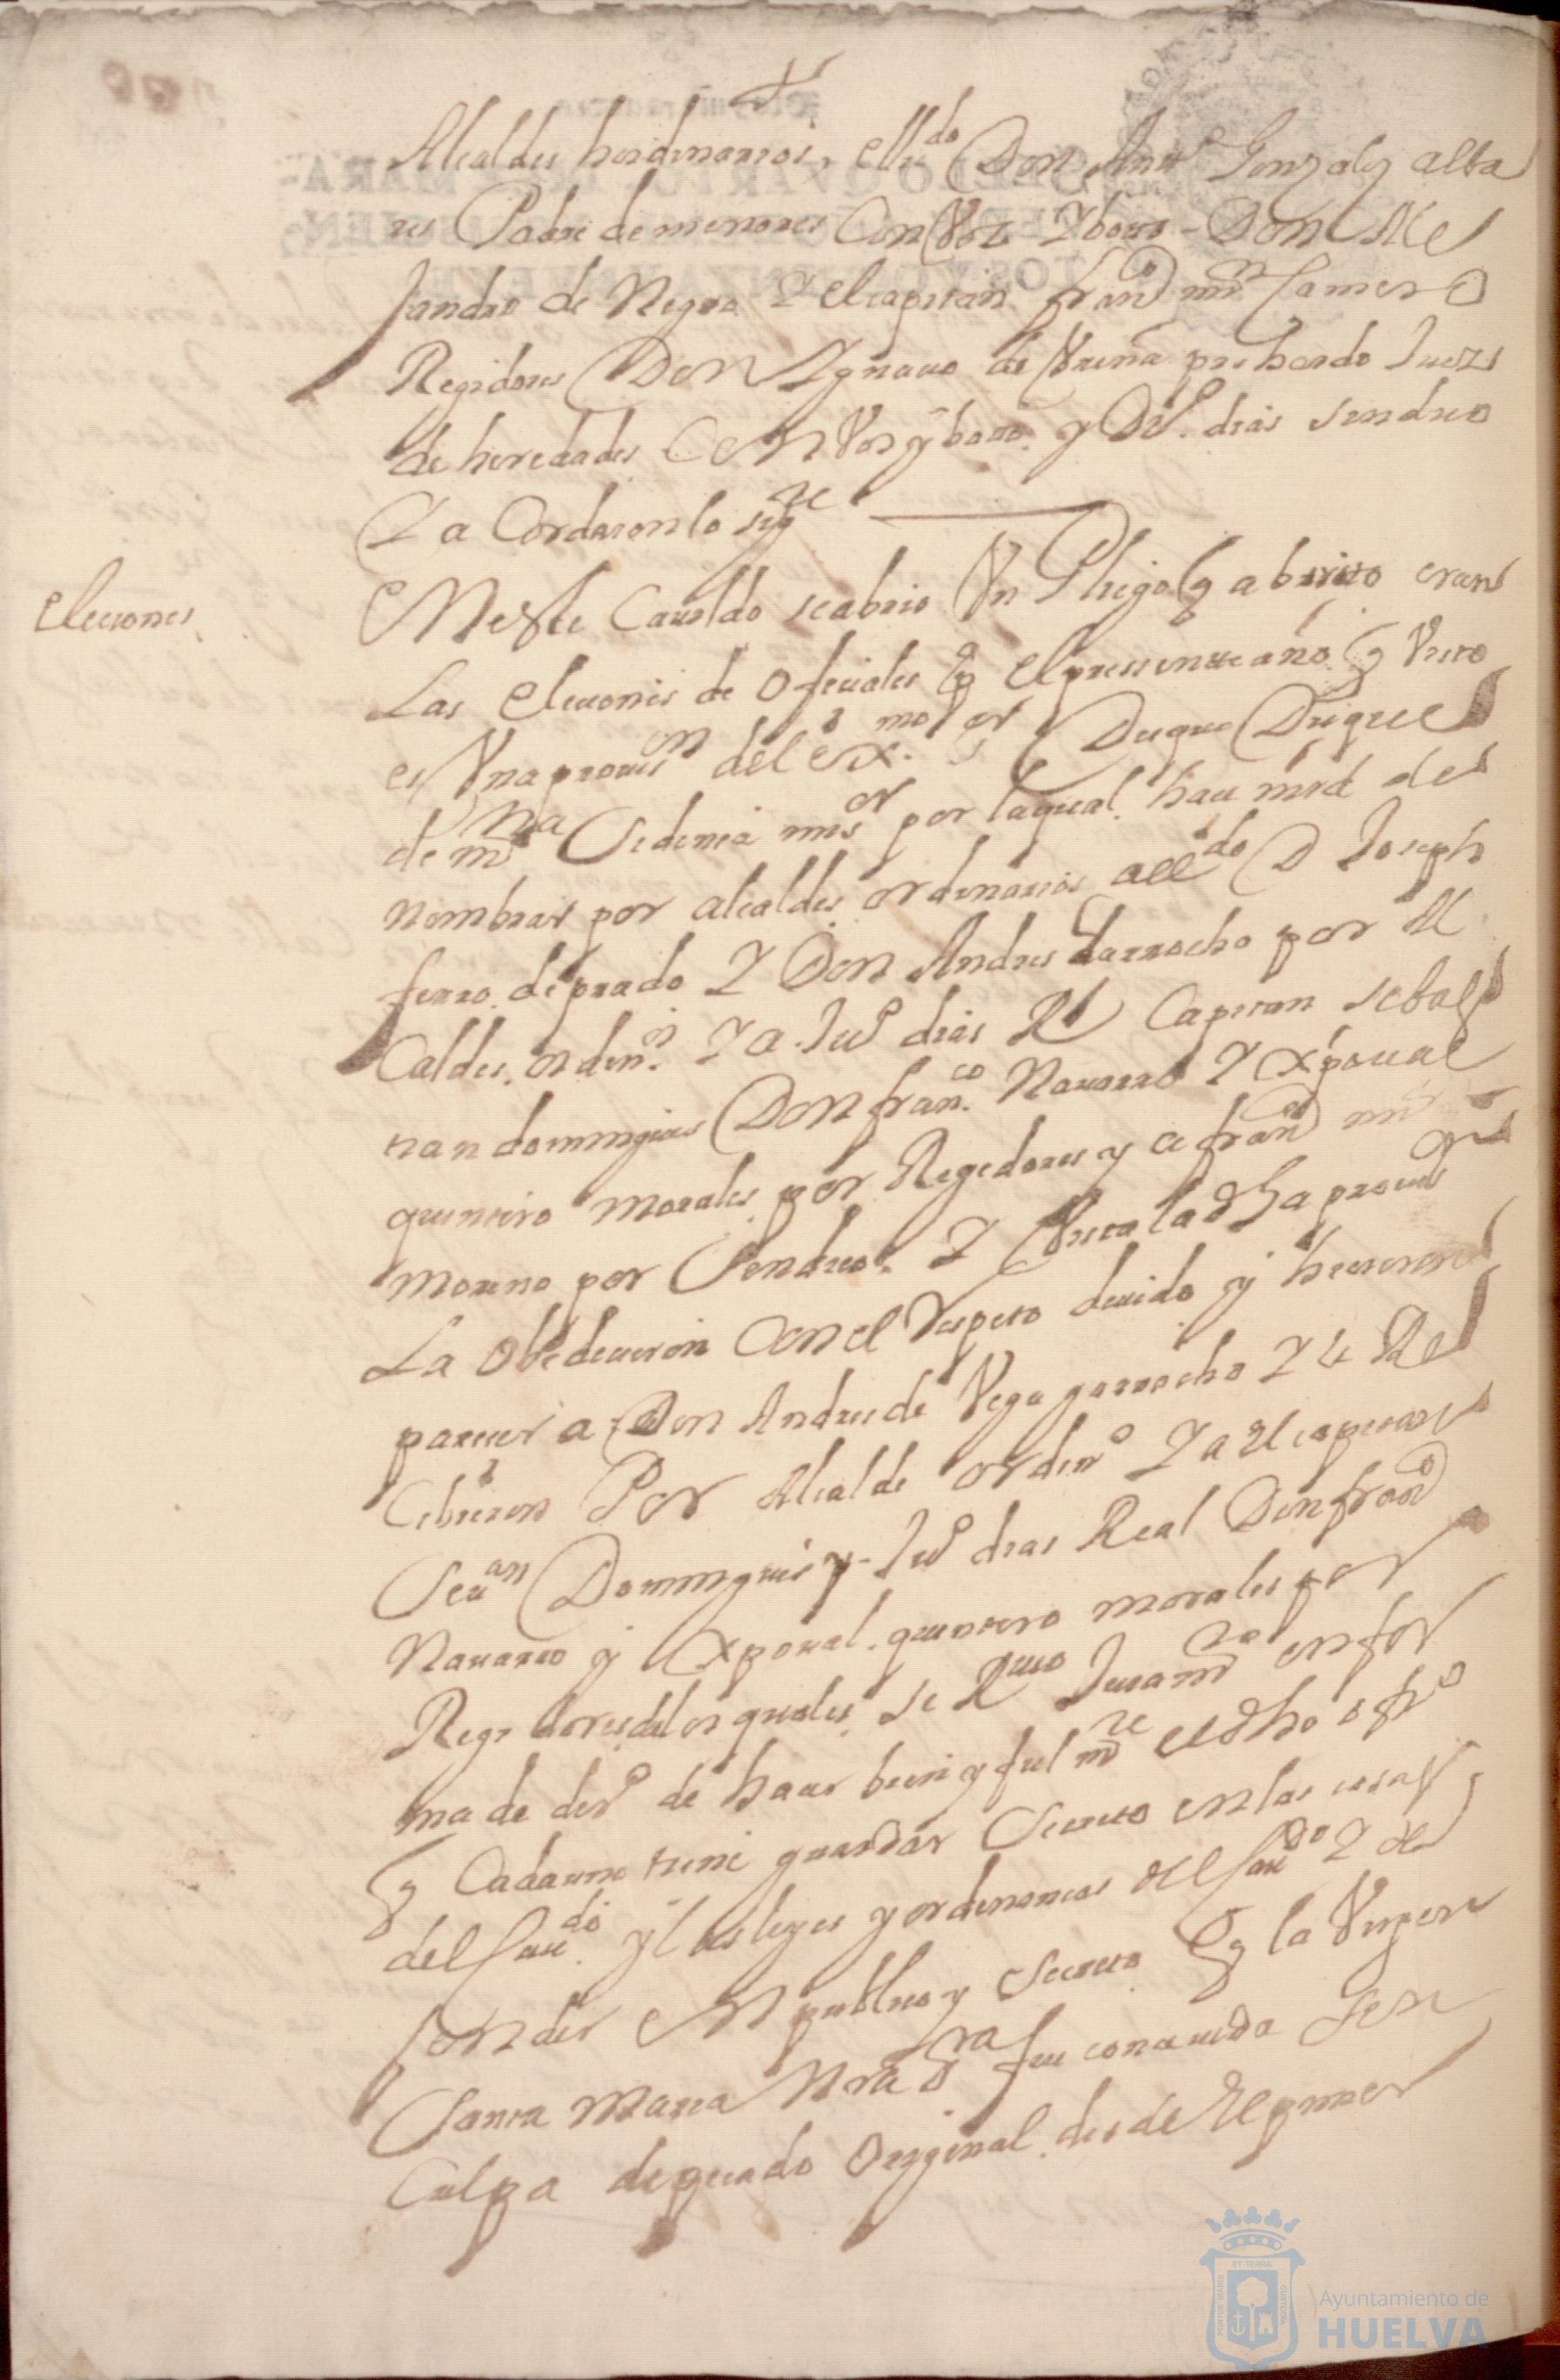 Alcaldes hordinarios, ellido Don Anto Gonzales alba
res Padre de menores Con Voz Y boto - Don Ale
jandro de Negro Y el capitan franco mrn Camero
Regidores Don Ygnacio de Vreña prebordo Juez
de heredades Con Voz y boto y Ju.o dias sindico
Y a Cordaron lo sigte
Elecciones
En este Cauildo se abrio Vn Pliego q abierto eran
Las Elecciones de Oficiales pa El pressente año q Visto
es Vna prouison del exmo sor Duque Duque
de mna Sidonia mi sor por la qual hace mrd de
nombrar por alcaldes ordinarios al ldo D Joseph
fierro de prado Y Don Andres Garrocho por Al
Caldes ordins. Y a Juo dias Rl Capitan Sebas
tian domingues Don franco Nauarro Y Xpoual
quintero Morales por Regidores y a franco mrn
Moreno por Sindico. Y Vista la dha prouison
La Obedecieron Con el Respeto deuido y hicieron
parecer a Don Andres de Vega garrocho Y le Re
Cibieron Por Alcalde ordino Y a El capitan
Seuan Domingues y Juo dias Real Don franco
Nauarro y Xpoual quintero morales por
Regidores de los quales se Rciuio Juramto en for
ma de dero de hacer bien y fielmte el dho ofo
q Cada uno tiene guardar Secreto en las cosas
del Caudo y las leyes y ordenanzas del Caudo Y de
fender En publico y Secreto q la Virgen
Santa Maria Nra Sra fue conceuida Sin
Culpa de pecado Original desde El primer
Ayuntamiento de
HUELVA